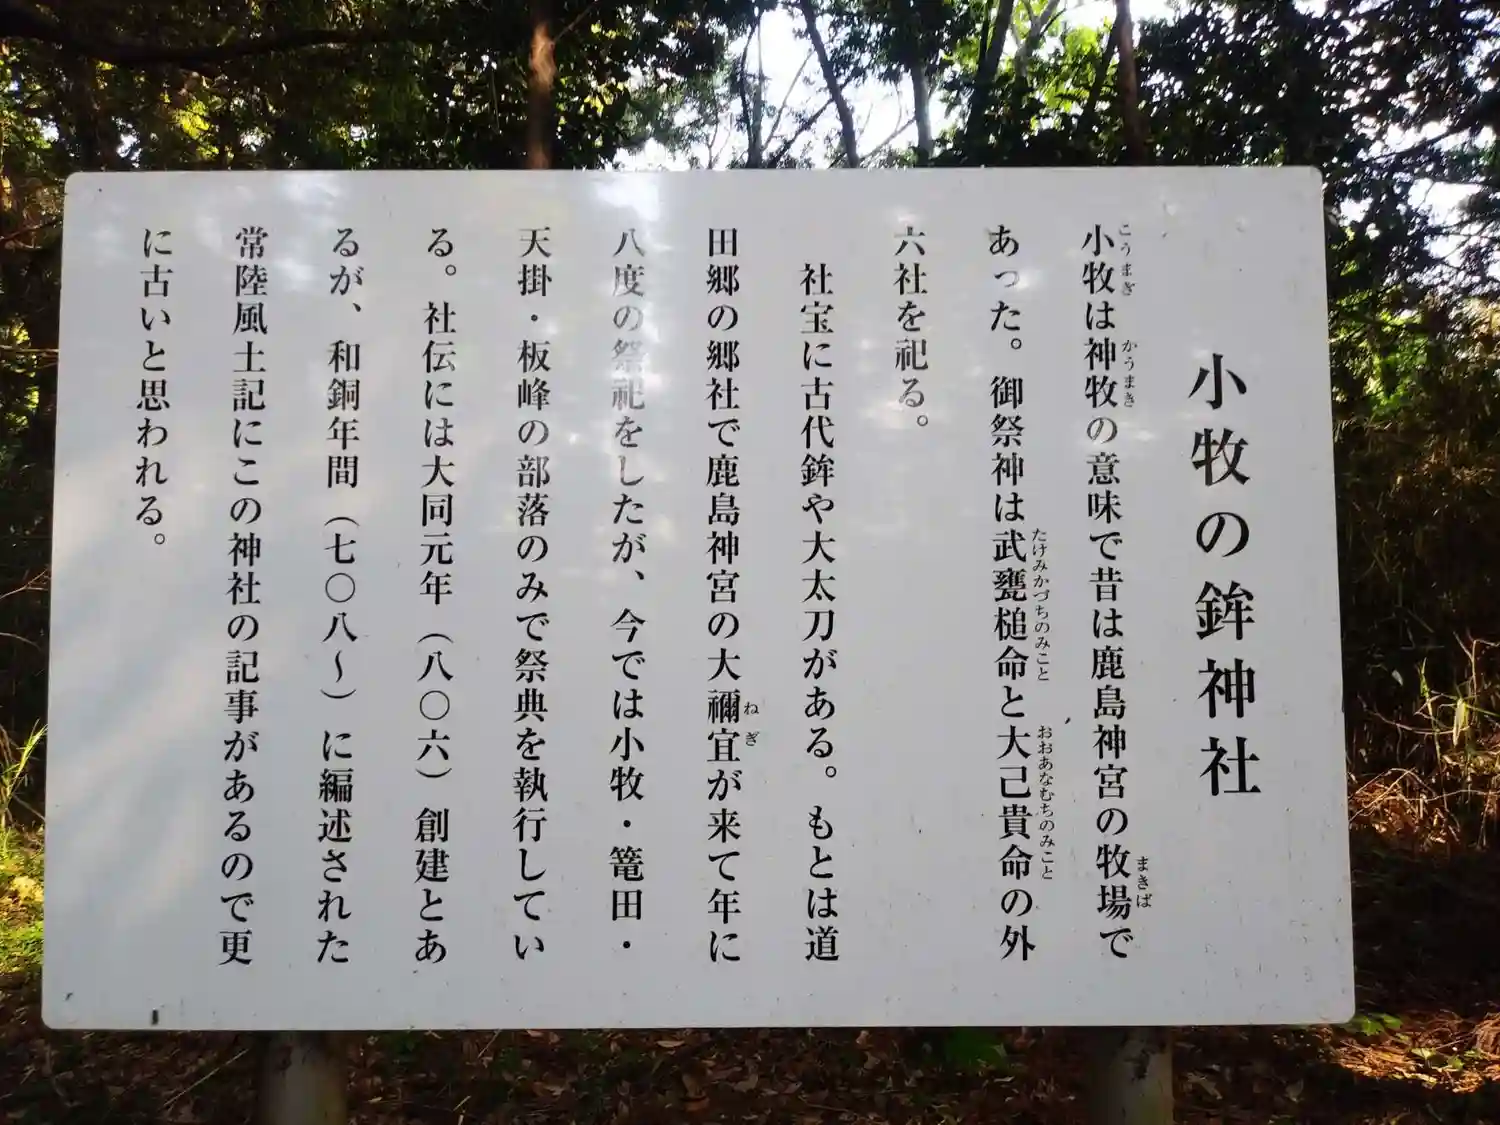 小牧の鉾神社
小牧は神牧の意味で昔は鹿島神宮の牧場で
こうまぎ
かうまき
まきば
あった。御祭神は武甕槌命と大己貴命の外
たけみかづちのみこと
おおあなむちのみこと
六社を祀る。
社宝に古代鉾や大太刀がある。もとは道
田郷の郷社で鹿島神宮の大禰宜が来て年に
ねぎ
八度の祭祀をしたが、今では小牧・篭田・
天掛・板峰の部落のみで祭典を執行してい
る。社伝には大同元年（八〇六）創建とあ
るが、和銅年間（七〇八～）に編述された
常陸風土記にこの神社の記事があるので更
に古いと思われる。